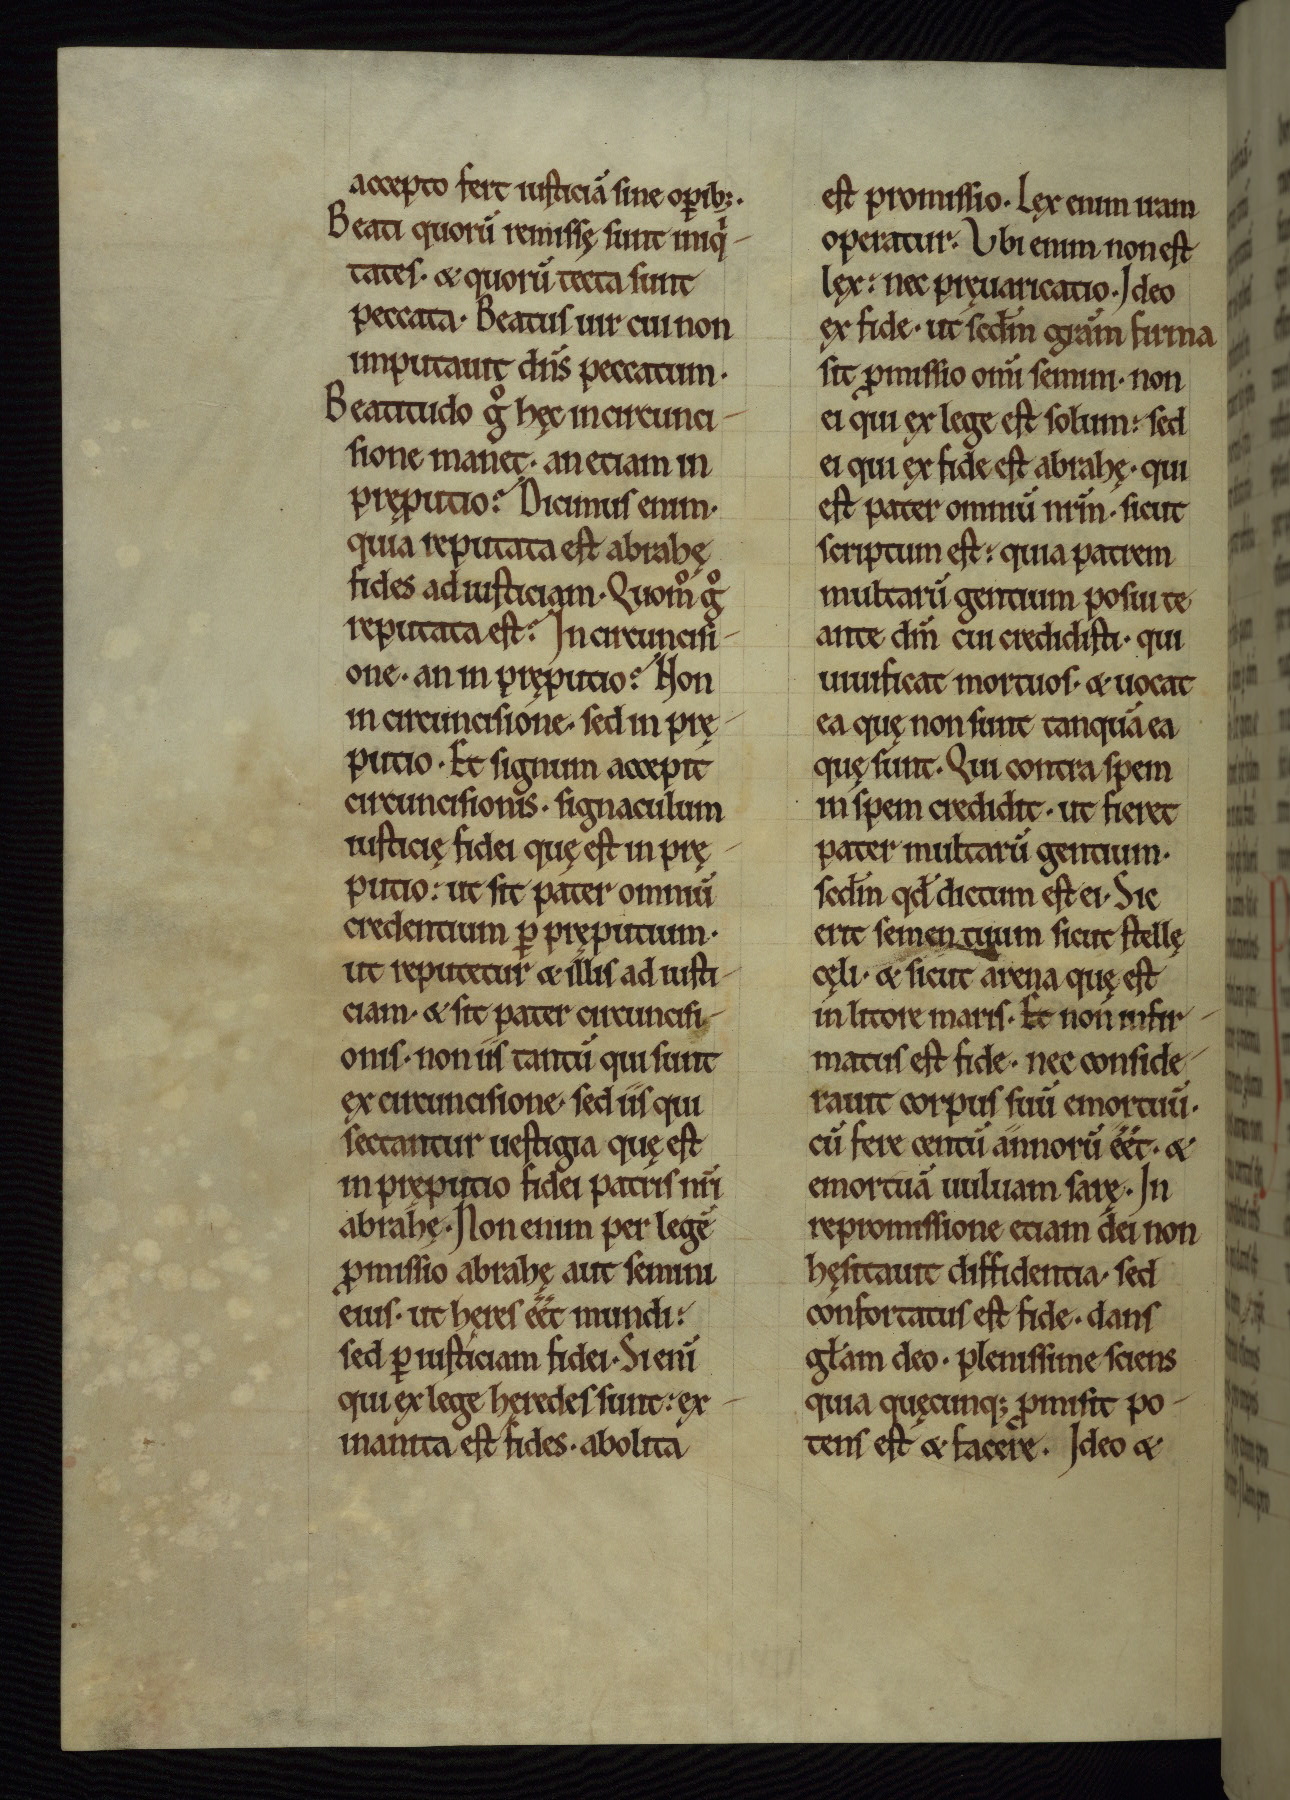 accepto fert iusticiā sine oꝑib;.
Beati quorū remissę sunt iniqͥ-
tates. & quorū tecta sunt
peccata. Beatus uir cui non
imputauit dn̄s peccatum.
Beatitudo gͦ hęc in circunci-
sione manet. an etiam in
pręputio? Dicimus enim.
quia reputata est abrahę
fides ad iusticiam. Quom̊ gͦ
reputata est? In circuncisi-
one. an in pręputio? Non
in circuncisione. sed in prę-
putio. Et signum accepit
circuncisionis. signaculum
iusticię fidei quę est in prę-
putio: ut sit pater omniū
credentium ꝑ pręputium.
ut reputetur & illis ad iusti-
ciam. & sit pater circuncisi-
onis. non iis tantū qui sunt
ex circuncisione. sed iis qui
sectantur uestigia quę est
in pręputio fidei patris nr̄i
abrahę. Non enim per legē
ꝓmissio abrahę aut semini
eius. ut hęres eēt mundi:
sed ꝑ iusticiam fidei. Si enī
qui ex lege hęredes sunt: ex-
inanita est fides. abolita
est promissio. Lex enim iram
operatur. Vbi enim non est
lex: nec pręuaricatio. Ideo
ex fide. ut sedm̄ grām firma
sit ꝓmissio om̄i semini. non
ei qui ex lege est solum: sed
ei qui ex fide est abrahę. qui
est pater omniū nrm̄. sicut
scriptum est: quia patrem
multarū gentium posui te
ante dm̄ cui credidisti. qui
uiuificat mortuos. & uocat
ea quę non sunt tanquā ea
quę sunt. Qui contra spem
in spem credidit. ut fieret
pater multarū gentium.
sedm̄ qd̄ dictum est ei. Sic
erit semen tuum sicut stellę
cęli. & sicut arena quę est
in litore maris. Et non infir-
matus est fide. nec conside-
rauit corpus suū emortuū.
cū fere centū annorū eēt. &
emortuā uuluam sarę. In
repromissione etiam dei non
hęsitauit diffidentia. sed
confortatus est fide. dans
gl̄am deo. plenissime sciens
quia quęcunq; ꝓmisit po-
tens est & facere. Ideo &